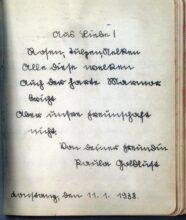 Aus Liebe!
Rosen, Tulpen, Nelken
Alle diese welken
Auch der harte Marmor
bricht
Aber unsre Freundschaft
nicht.
Von deiner Freundin
Paula Goldlust
den 11. 1. 1938.